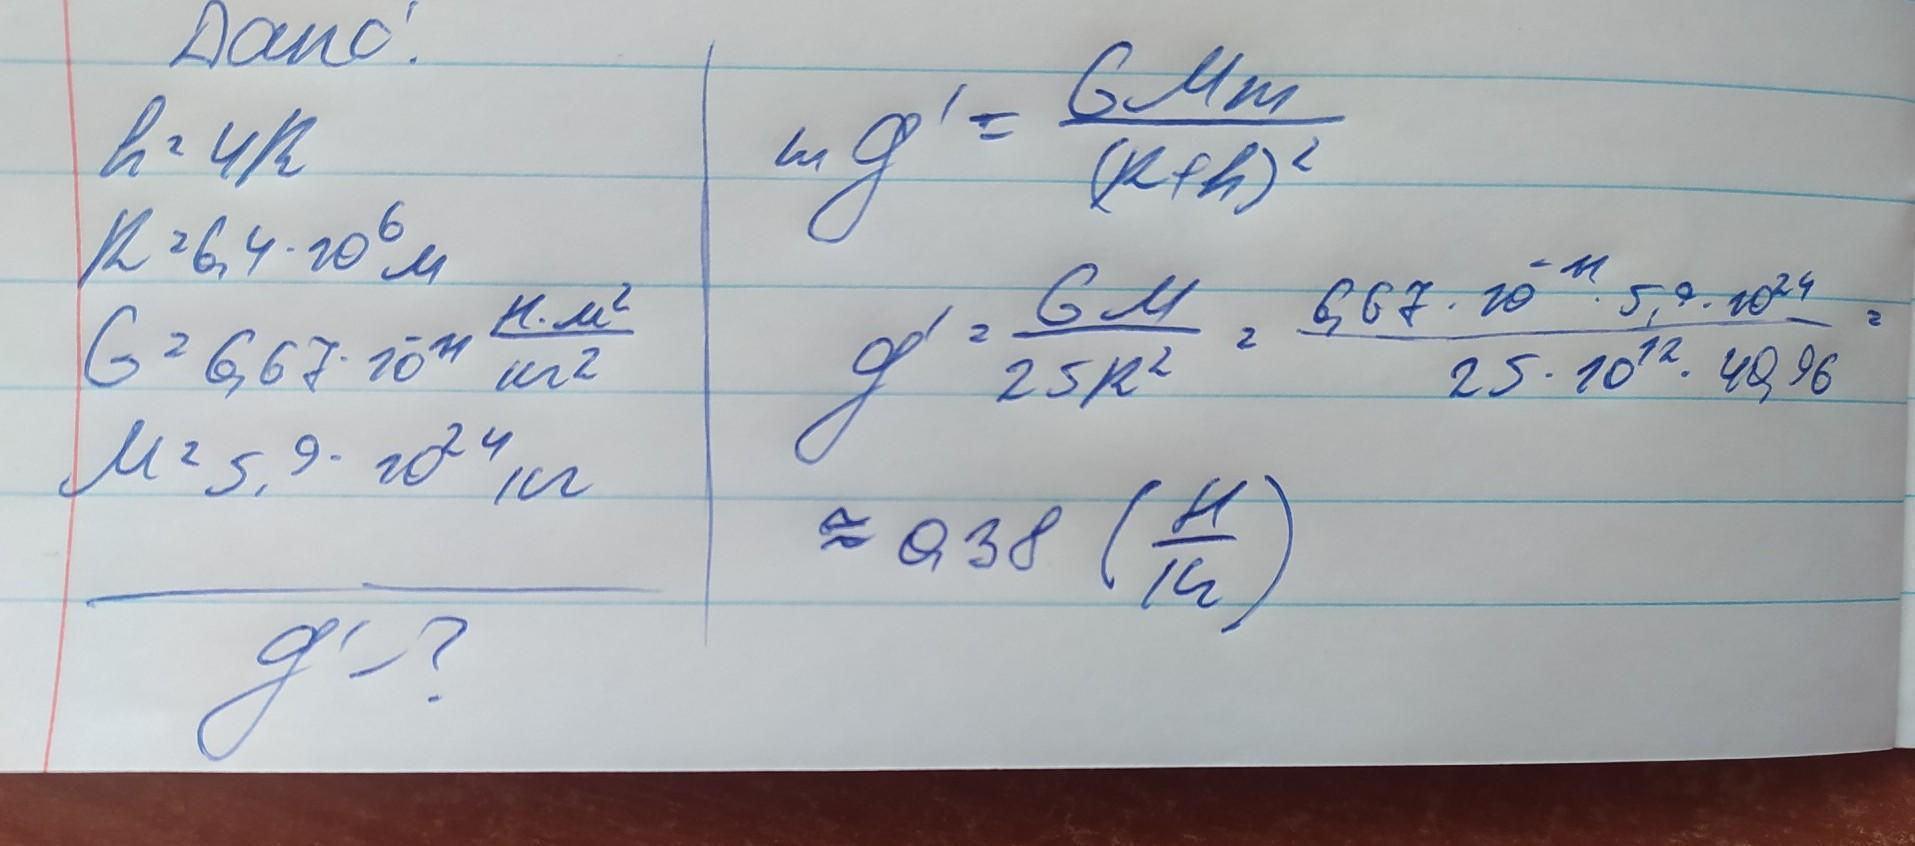 Дано:
h = 4R
R = 6,4·10⁶ м
G = 6,67·10⁻¹¹ Н·м²/кг²
M = 5,9·10²⁴ кг
g' - ?
mg' = GMm/(R+h)²
g' = GM/25R² = 6,67·10⁻¹¹·5,9·10²⁴/25·10¹²·40,96 =
≈ 0,38 (Н/кг)